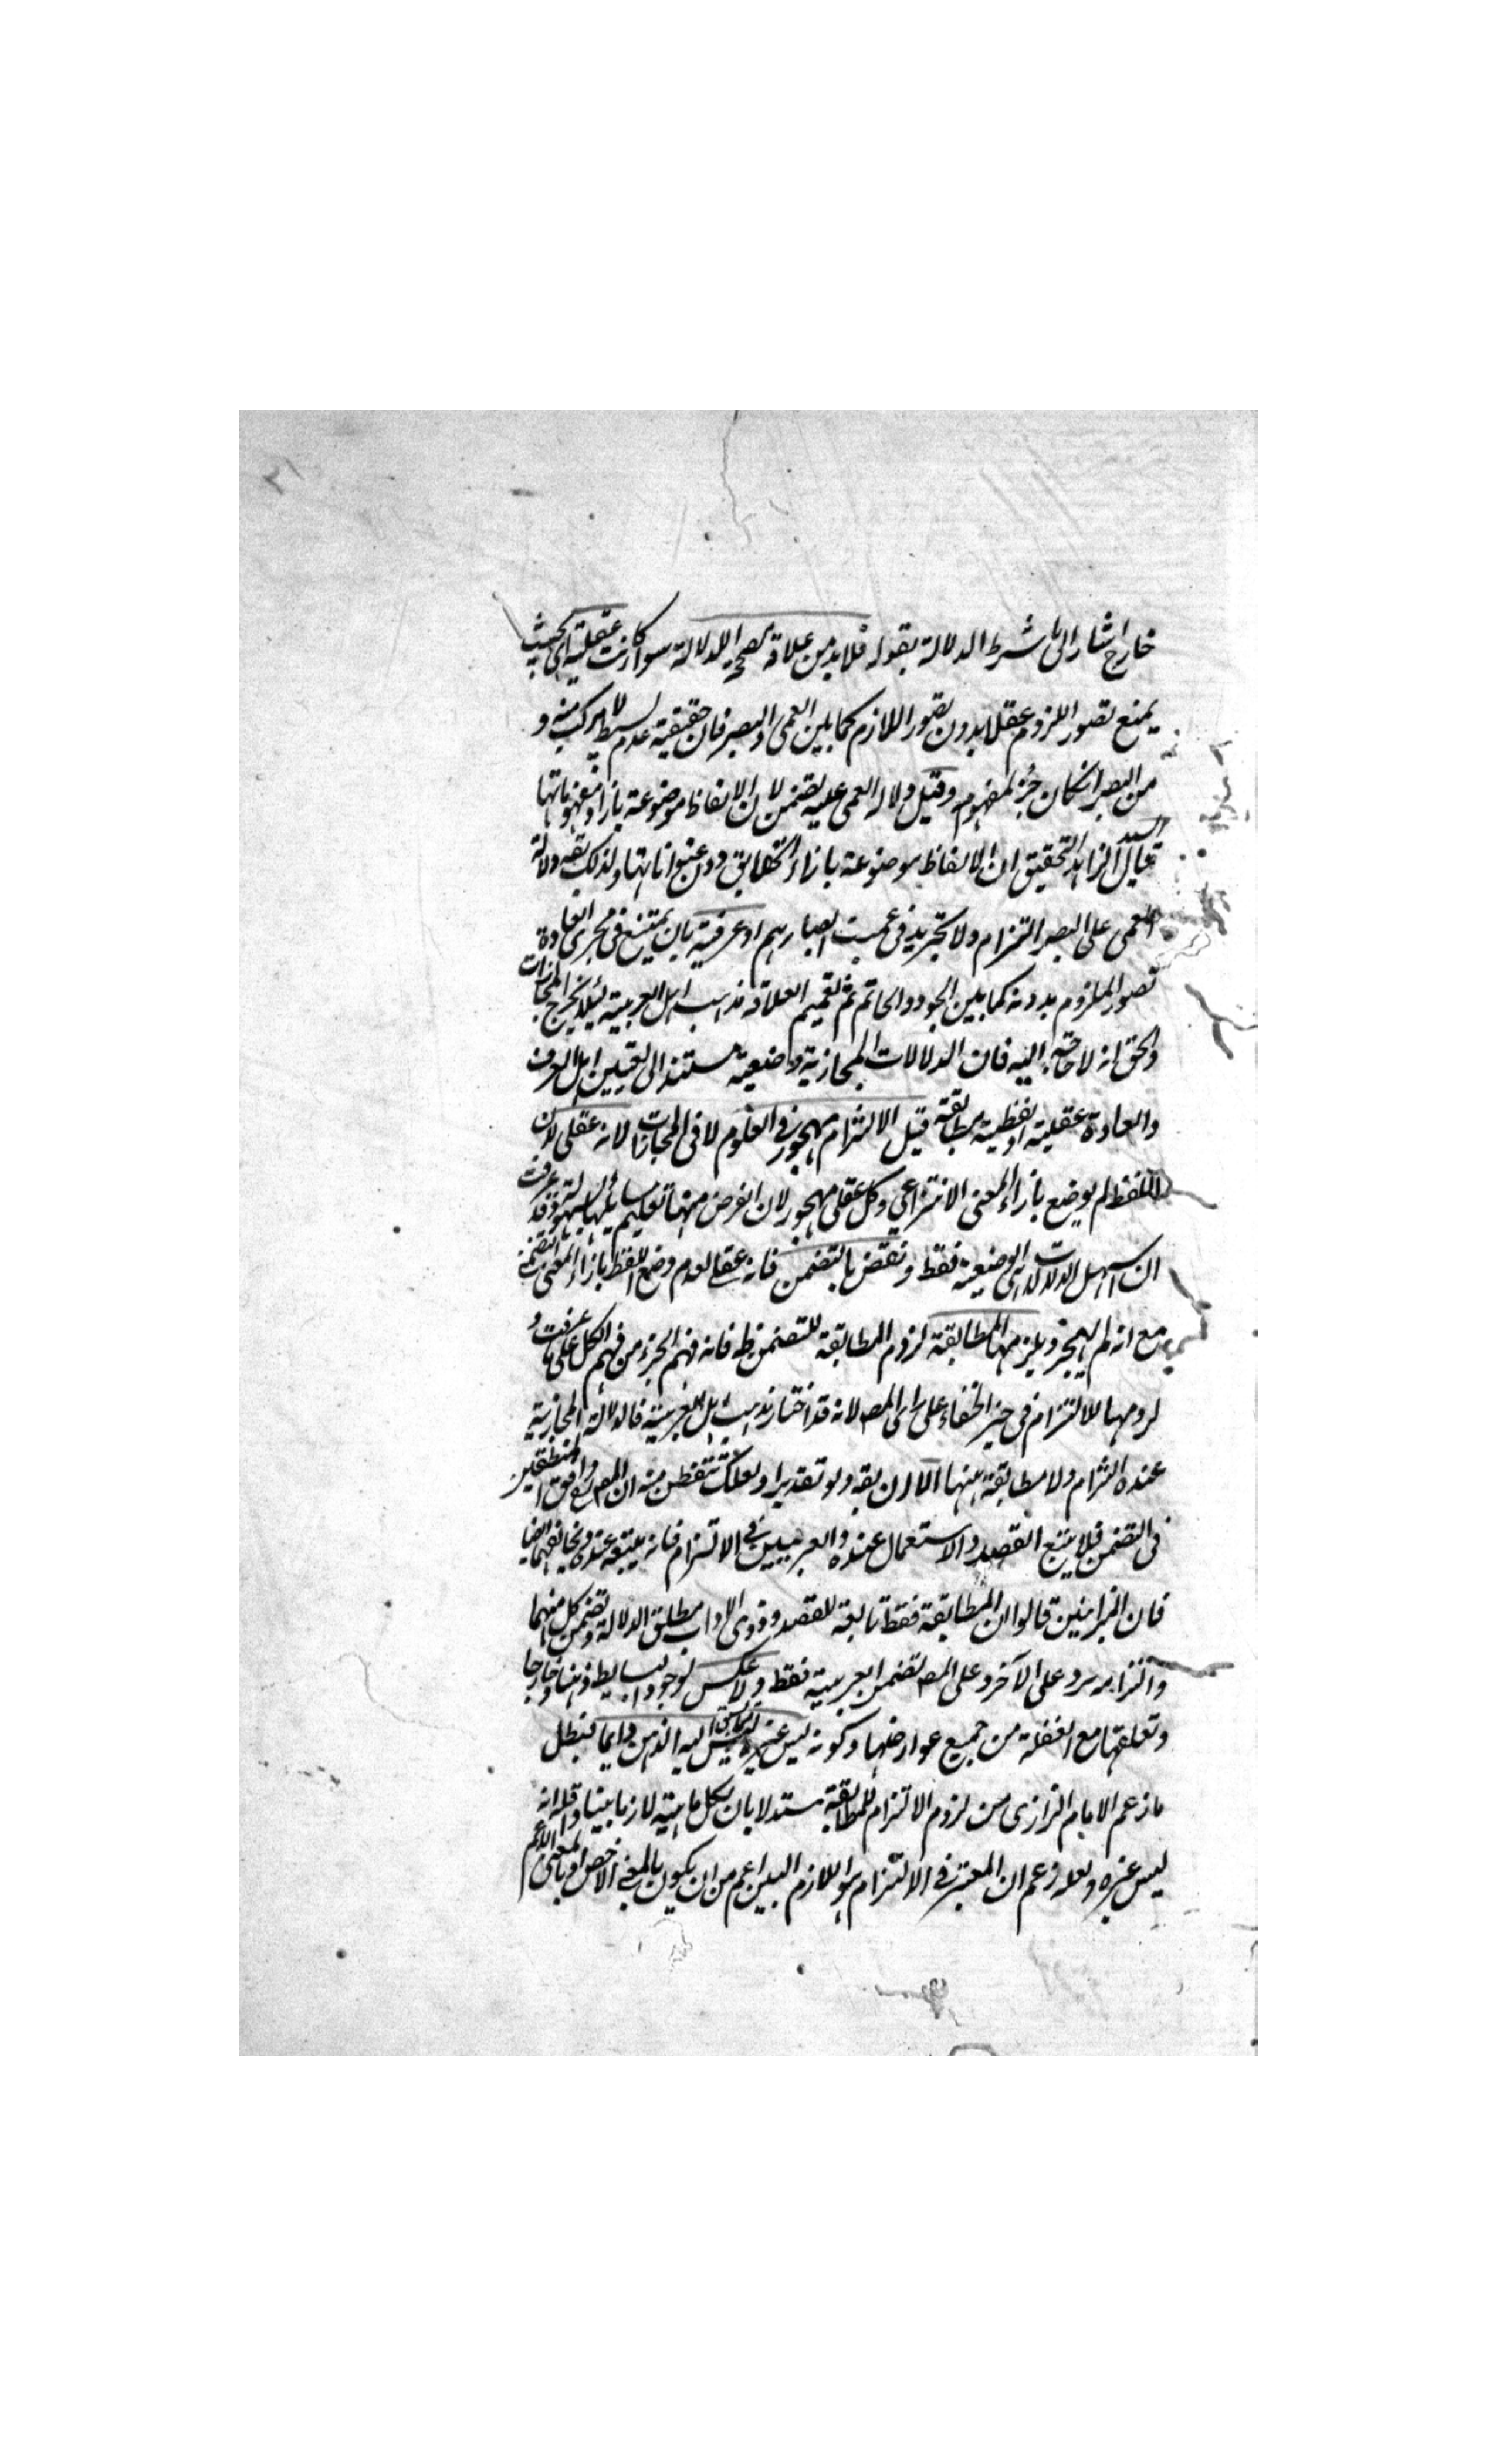 خارج اشار الى شرط الدلالة بقوله فلابد من علاقة مصححة للدلالة سواء كانت عقلية اى بحيث
يمنع تصور الملزوم عقلا بدون تصور اللازم كما بين العمى والبصر فان حقيقية عدم بسيط لا يتركب منه و
من البصر ان كان جزء لمفهومه وقيل دلالة العمى عليه تضمن لان الالفاظ موضوعة بازاء مفهوماتها
قال السيد الزاهد التحقيق ان الالفاظ موضوعة بازاء الحقايق دون عنواناتها ولذلك بقه دلالة
العمى على البصر التزام ولا تجريد فى عميت ابصارهم او عرفية بان يمتنع فى مجرى العادة
تصور الملزوم بدونه كما بين الجود والحاتم ثم تعميم العلاقة مذهب اهل العربية لئلا يخرج المجازات
والحق انه لا حاجة اليه فان الدلالات المجازية وضعية مستندا الى تعيين اهل العرف
والعادة عقلية او لفظية مطابقة قيل الالتزام مهجور فى العلوم لا فى المجازات لانه عقلى لان
اللفظ لم يوضع بازاء المعنى الانتزاعي وكل عقلى مهجور لان الغرض منها تعليم مسائلها بسهولة وقد عرفت
ان اسهل الدلالات هى الوضعية فقط ونقض بالتضمن فانه عقلى لعدم وضع اللفظ بازاء المعنى التضمنى
مع انه لم يهجر ويلزمهما المطابقة لزوم المطابقة للتضمن ظ فانه فهم الجزء من فهم الكل على ما عرفت و
لزومها للالتزام فى حيز الخفاء على راى المص لانه قد اختار مذهب اهل العربية فالدلالة المجازية
عنده التزام ولا مطابقة هنا الا ان يقه ولو تقديرا ولعلك تتفطن منه ان المص وافق المنطقيين
فى التضمن فلا يتبع القصد والاستعمال عنده والعربيين فى الالتزام فانه يتبعه عنده ويخالفهما ايضا
فان الميزانيين قالوا ان المطابقة فقط تابعة للقصد وذوى الاداب مطلق الدلالة وتضمن كل منهما
والتزامه يرد على الآخر وعلى المص تضمن العربية فقط ولا عكس لوجود البسايط ذهنا وخارجا
وتعلقها مع الغفلة من جميع عوارضها وكونه ليس غيره ليس مما يسبق اليه الذهن دايما فبطل
ما زعم الامام الرازى من لزوم الالتزام للمطابقة مستدلا بان لكل ماهية لازما بينا واقله انه
ليس غيره ولعله زعم ان المعتبر فى الالتزام هو اللازم البين اعم من ان يكون بالمعنى الاخص او بالمعنى الاعم